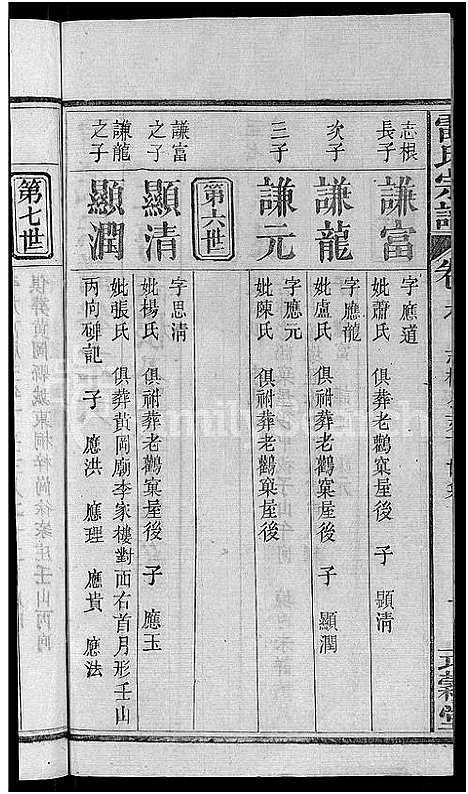 志根長子
謙富
字應道
妣蕭氏 俱祔葬老鸛窠屋後 子 顯清
次子
謙龍
字應龍
妣盧氏 俱祔葬老鸛窠屋後 子 顯潤
三子
謙元
字應元
妣陳氏 俱祔葬老鸛窠屋後
第六世
謙富之子
顯清
字思清
妣楊氏 俱祔葬老鸛窠屋後 子 應玉
謙龍之子
顯潤
妣張氏 俱葬黄岡廟李家樓對面右首月形壬山
丙向碑記 子 應洪 應理 應貴 應法
第七世